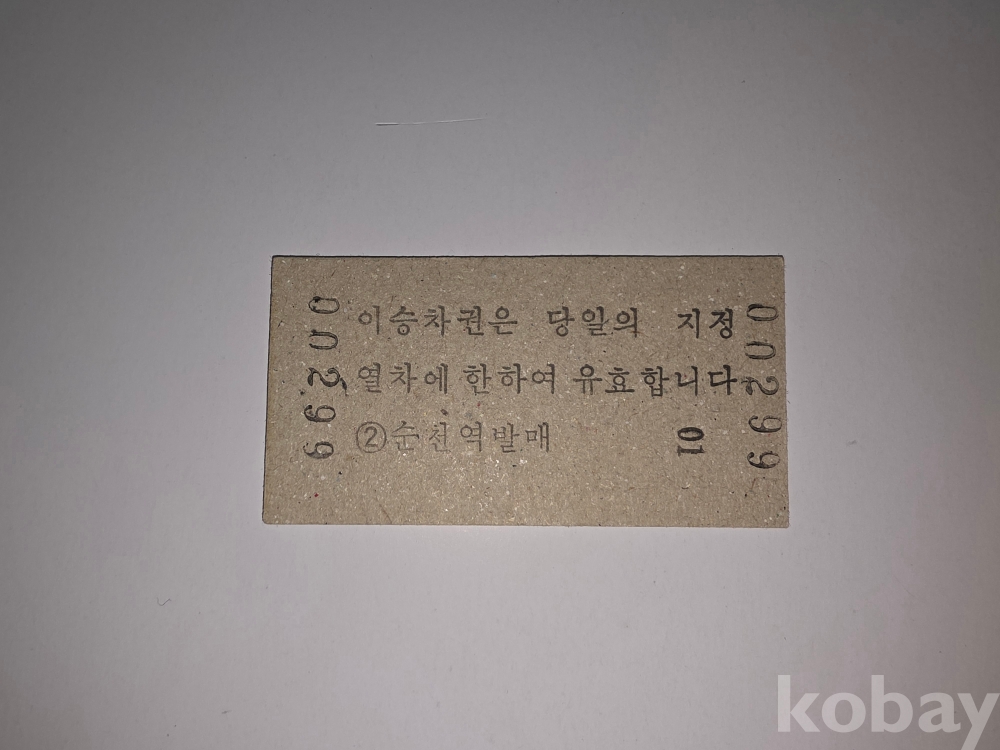 이승차권은 당일의 지정
열차에 한하여 유효합니다
②순천역발매
01
00299
00299
kobay